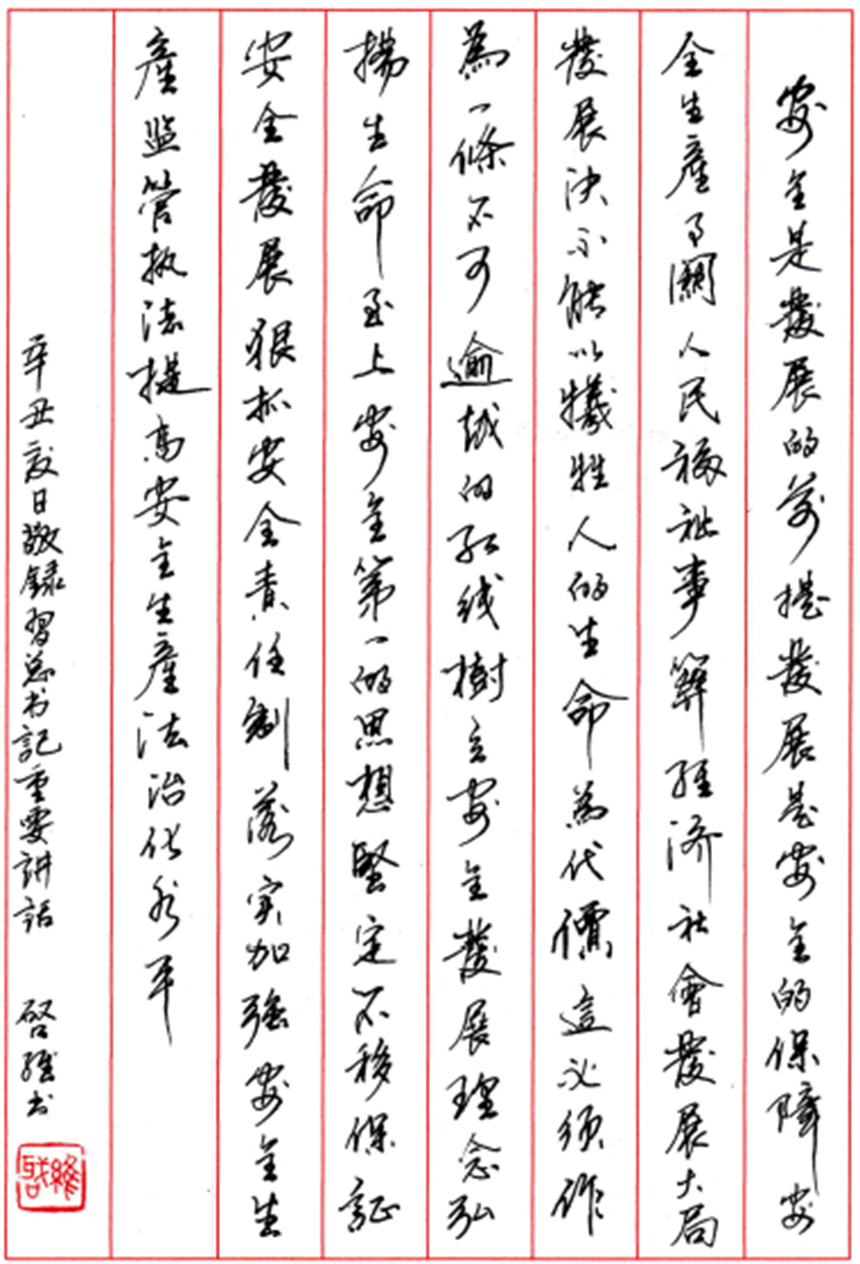 安全是發展的前提發展是安全的保障安
全生產事關人民福祉事關經济社會發展大局
發展決不能以犧牲人的生命為代價這必须作
為一條不可逾越的红线樹立安全發展理念弘
揚生命至上安全第一的思想堅定不移保証
安全發展狠抓安全责任制落实加強安全生
產监管执法提高安全生産法治化水平
辛丑夏日敬録習总书記重要講話
啓維书
啓維